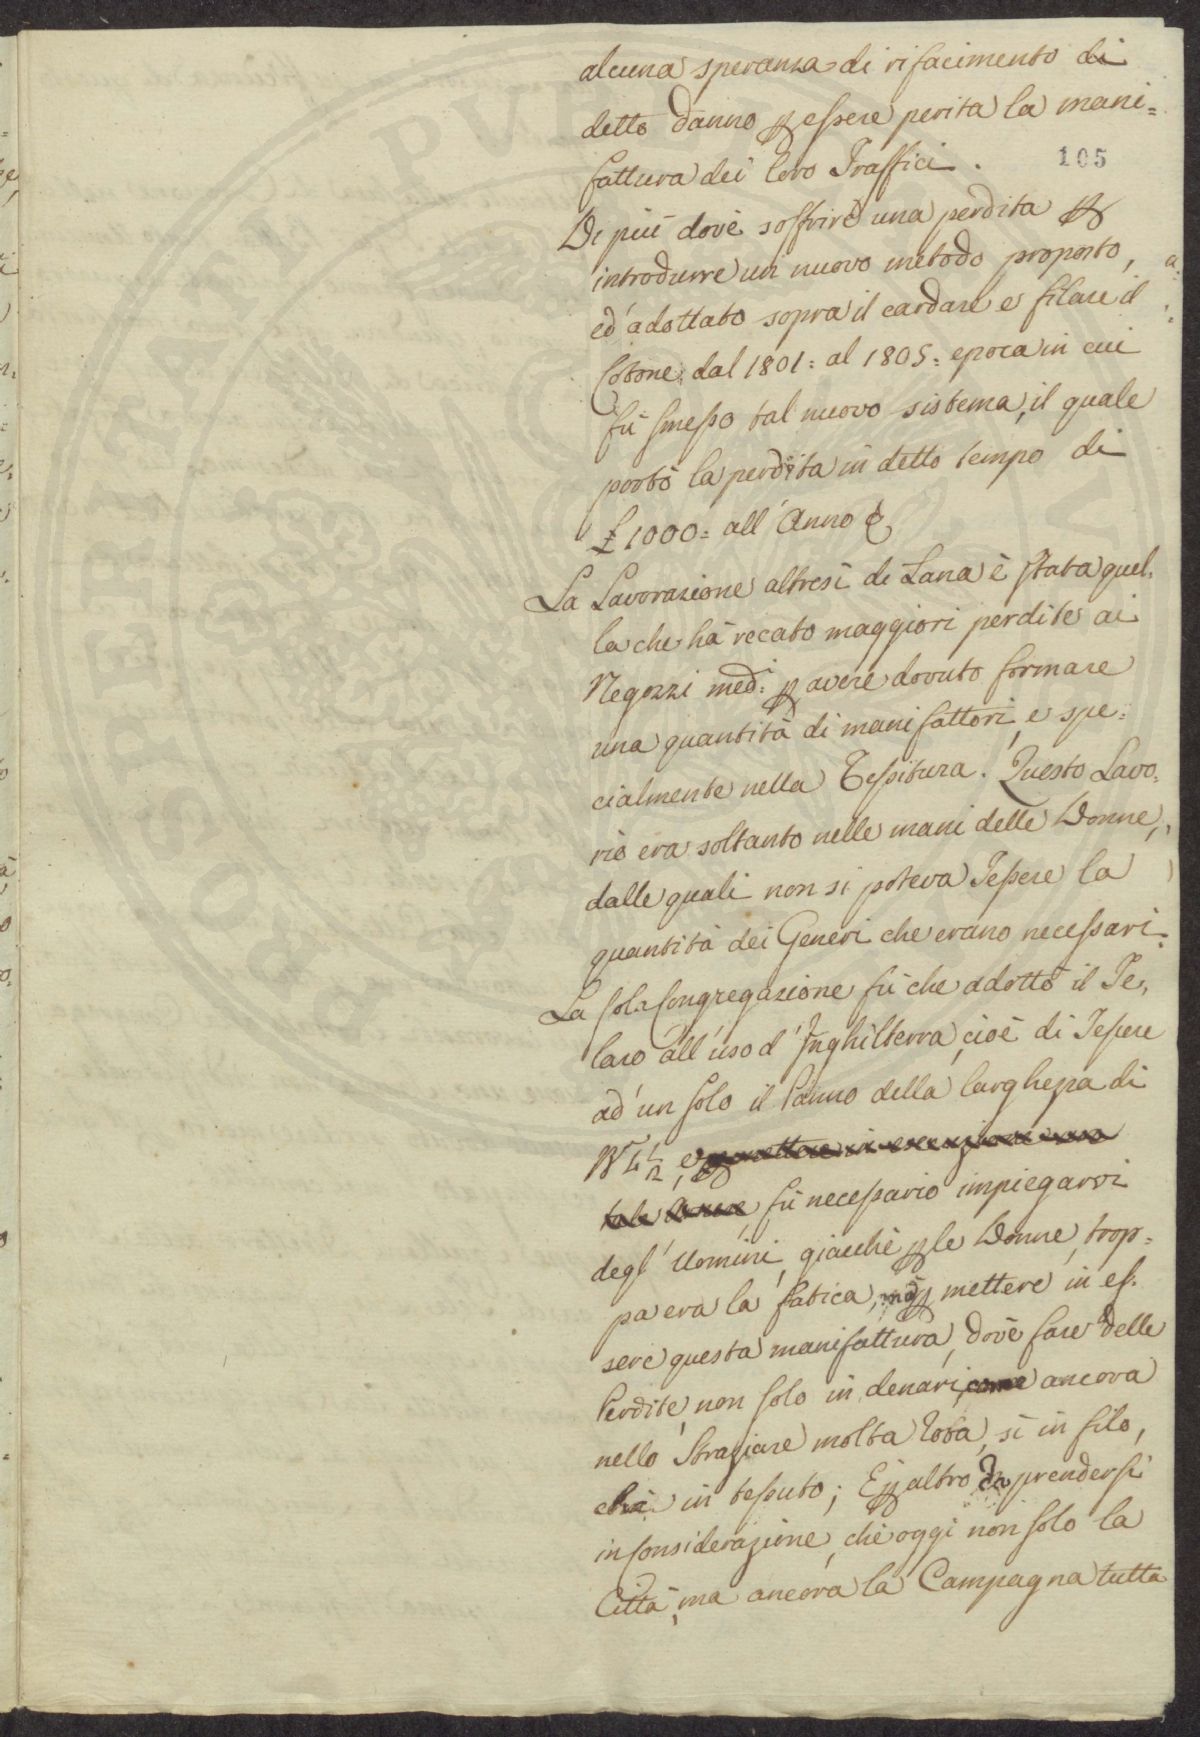 alcuna speranza di rifacimento di
detto danno p essere perita la mani=
fattura dei loro Traffici.
105
Di più dovè soffrire una perdita p
introdurre un nuovo metodo proposto,
ed' adottato sopra il cardare e filare il
Cotone, dal 1801: al 1805: epoca in cui
fù smesso tal nuovo sistema, il quale
portò la perdita in detto tempo di
£ 1000= all' Anno
La Lavorazione altresì di Lana è stata quel=
la che hà recato maggiori perdite ai
Negozzi med:i p avere dovuto formare
una quantità di manifattori, e spe=
cialmente nella Tessitura. Questo Lavo=
rio era soltanto nelle mani delle Donne,
dalle quali non si poteva Tessere la
quantità dei Generi che erano necessari.
La sola Congregazione fù che adottò il Te=
laro all' uso d' Inghilterra, cioè di Tessere
ad' un solo il Panno della larghezza di
4 1/2, e p mettere in esecuzione una
tale fù necessario impiegarvi
degl' Uomini, giacchè p le Donne, trop=
pa era la fatica, mà p mettere in es=
sere questa manifattura, dovè fare delle
Perdite, non solo in denari, come ancora
nello Straziare molta Roba, sì in filo,
che in tessuto; E p altro da prendersi
in considerazione, che oggi non solo la
Città, ma ancora la Campagna tutta